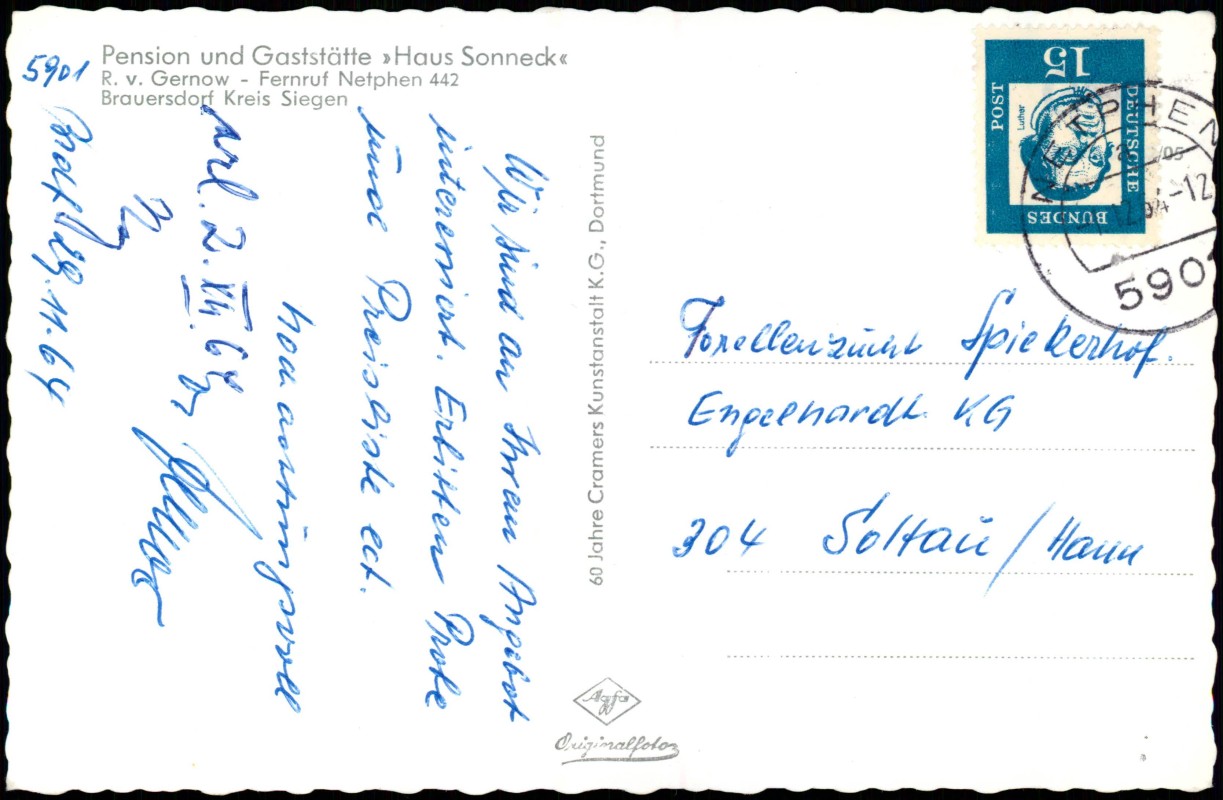 Pension und Gaststätte »Haus Sonneck«
R. v. Gernow - Fernruf Netphen 442
Brauersdorf Kreis Siegen
5901
29.11.64
Wir sind an Ihrem Angebot
interessiert. Erbitten Probe
und Preisliste ect.
Hochachtungsvoll
erl. 2. XII. 64
60 Jahre Cramers Kunstanstalt K.G., Dortmund
Agfa
Originalfoto
15
DEUTSCHE
BUNDES
POST
Luther
NETPHEN
5901
Forellenzucht Spiekerhof.
Engelhardt KG
304 Soltau / Hann